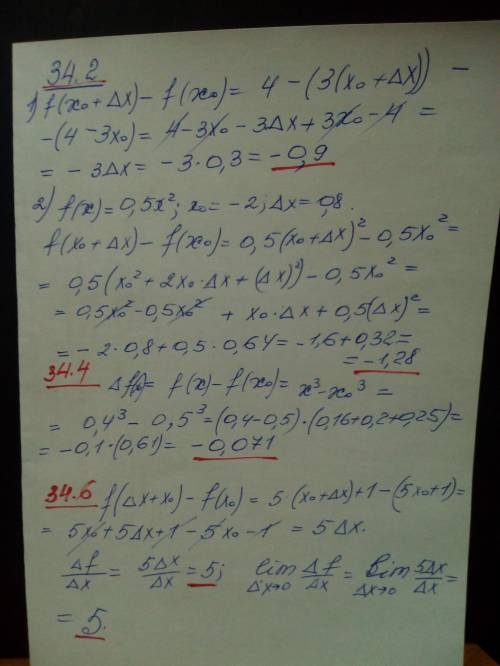 34.2
1) f(x₀ + Δx) − f(x₀) = 4 − (3(x₀ + Δx)) −
−(4 − 3x₀) = 4 − 3x₀ − 3Δx + 3x₀ − 4 =
= − 3Δx = − 3 · 0,3 = −0,9
2) f(x) = 0,5x²; x₀ = −2; Δx = 0,8.
f(x₀ + Δx) − f(x₀) = 0,5(x₀ + Δx)² − 0,5x₀² =
= 0,5(x₀² + 2x₀ · Δx + (Δx)²) − 0,5x₀² =
= 0,5x₀² − 0,5x₀² + x₀ · Δx + 0,5(Δx)² =
= − 2 · 0,8 + 0,5 · 0,64 = −1,6 + 0,32 =
= −1,28
34.4 Δf(x) = f(x) − f(x₀) = x³ − x₀³ =
= 0,4³ − 0,5³ = (0,4 − 0,5) · (0,16 + 0,2 + 0,25) =
= −0,1 · (0,61) = −0,071
34.6 f(Δx + x₀) − f(x₀) = 5 · (x₀ + Δx) + 1 − (5x₀ + 1) =
= 5x₀ + 5Δx + 1 − 5x₀ − 1 = 5Δx.
Δf/Δx = 5Δx/Δx = 5; lim Δx→0 Δf/Δx = lim Δx→0 5Δx/Δx =
= 5.